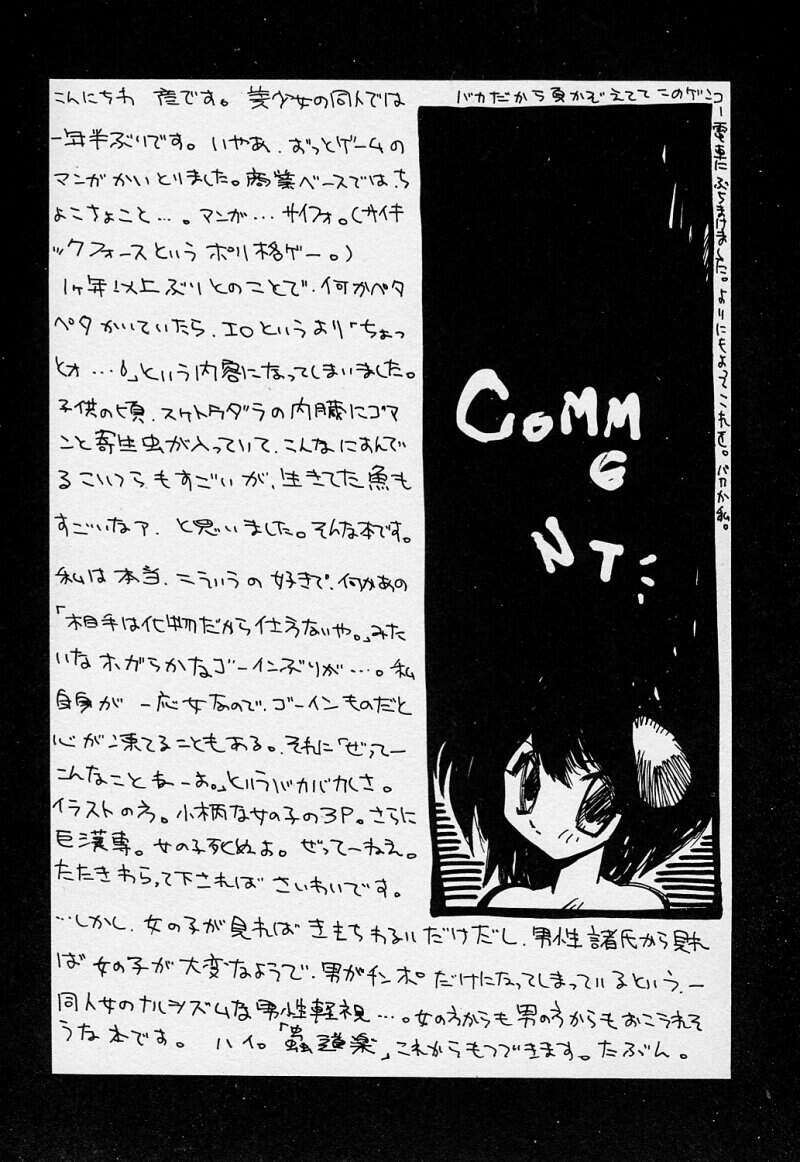 バカだから頁かぞえててこのゲンコー電車にぶちまけました。よりにもよってこれを。バカか私。
COMMENT
こんにちわ 彦です。美少女の同人では
一年半ぶりです。いやあ、ずっとゲームの
マンガかいとりました。商業ベースでは、ち
ょこちょこと…。マンガ…サイフォ。(サイキ
ックフォースという ポリ格ゲー。)
1ヶ年以上ぶりとのことで、何かペタ
ペタかいていたら、エロというより「ちょっ
とォ…。」という内容になってしまいました。
子供の頃、スケトウダラの内臓にゴマ
ンと寄生虫が入っていて、こんなにあんで
るこいつらもすごいが、生きてた魚も
すごいなァ、と思いました。そんな本です。
私は本当、こういうの好きで、何かあの
「相手は化物だから仕方ないや。」みた
いなホガらかなゴーインぶりが…。私
自身が 一応女なので、ゴーインものだと
心が凍てることもある。それに「ぜってー
こんなことねーよ。」というバカバカしさ。
イラストの方。小柄な女の子の3P。さらに
巨漢専。女の子死ぬよ。ぜってーねえ。
たたきわらって下されば さいわいです。
…しかし、女の子が見れば きもちわるいだけだし、男性諸氏から見れ
ば女の子が大変なようで、男がチンポだけになってしまっているという、一
同人女のナルシズムな男性軽視…。女の方からも男の方からもおこられそ
うな本です。 ハイ。「蟲道楽」これからもつづきます。たぶん。